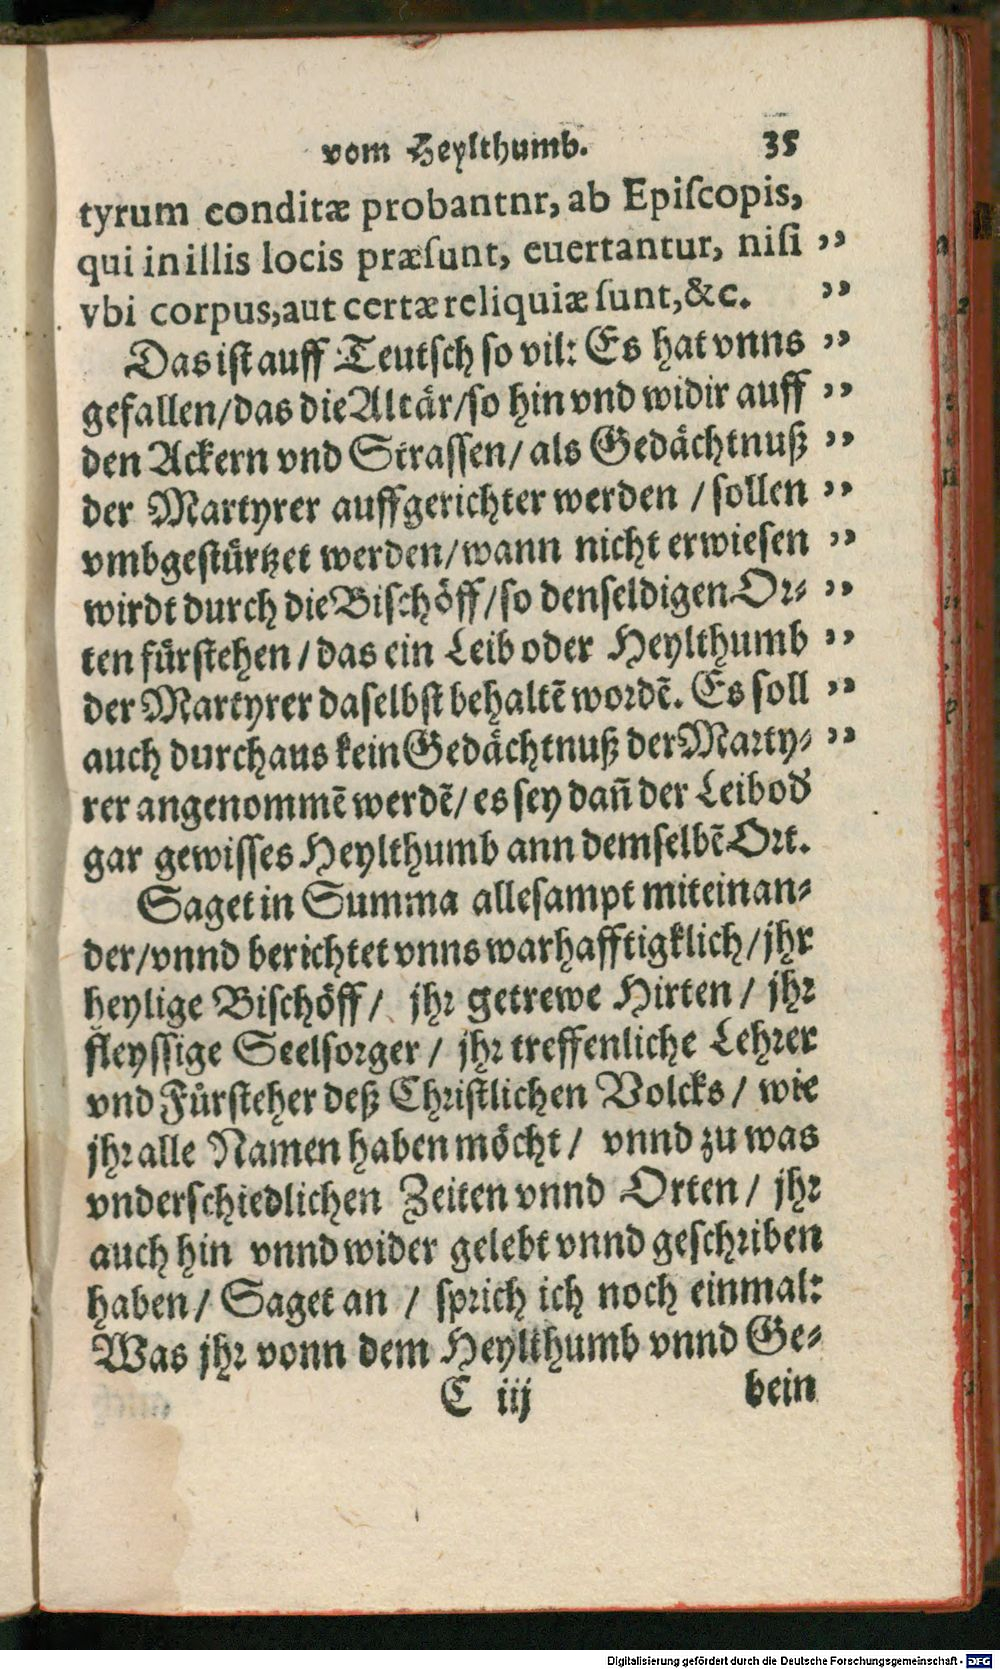 vom Heylthumb. 35
tyrum conditæ probantnr, ab Epiſcopis,
qui in illis locis præſunt, euertantur, niſi ,,
vbi corpus, aut certæ reliquiæ ſunt, &c. ,,
Das iſt auff Teutſch ſo vil: Es hat vnns ,,
gefallen/ das die Altär/ ſo hin vnd widir auff ,,
den Ackern vnd Straſſen/ als Gedächtnuß ,,
der Martyrer auffgerichter werden / ſollen ,,
vmbgeſtürtzet werden/ wann nicht erwieſen ,,
wirdt durch die Biſchöff/ ſo denſeldigen Or⸗ ,,
ten fürſtehen / das ein Leib oder Heylthumb ,,
der Martyrer daſelbſt behaltẽ wordẽ. Es ſoll ,,
auch durchaus kein Gedächtnuß der Marty⸗ ,,
rer angenommẽ werdẽ/ es ſey dañ der Leib od
gar gewiſſes Heylthumb ann demſelbẽ Ort.
Saget in Summa alleſampt miteinan⸗
der/ vnnd berichtet vnns warhafftigklich/ jhr
heylige Biſchöff/ jhr getrewe Hirten / jhr
fleyſſige Seelſorger / jhr treffenliche Lehrer
vnd Fürſteher deß Chriſtlichen Volcks / wie
jhr alle Namen haben möcht / vnnd zu was
vnderſchiedlichen Zeiten vnnd Orten / jhr
auch hin vnnd wider gelebt vnnd geſchriben
haben/ Saget an / ſprich ich noch einmal:
Was jhr vonn dem Heylthumb vnnd Ge⸗
C iij bein
Digitalisierung gefördert durch die Deutsche Forschungsgemeinschaft - DFG